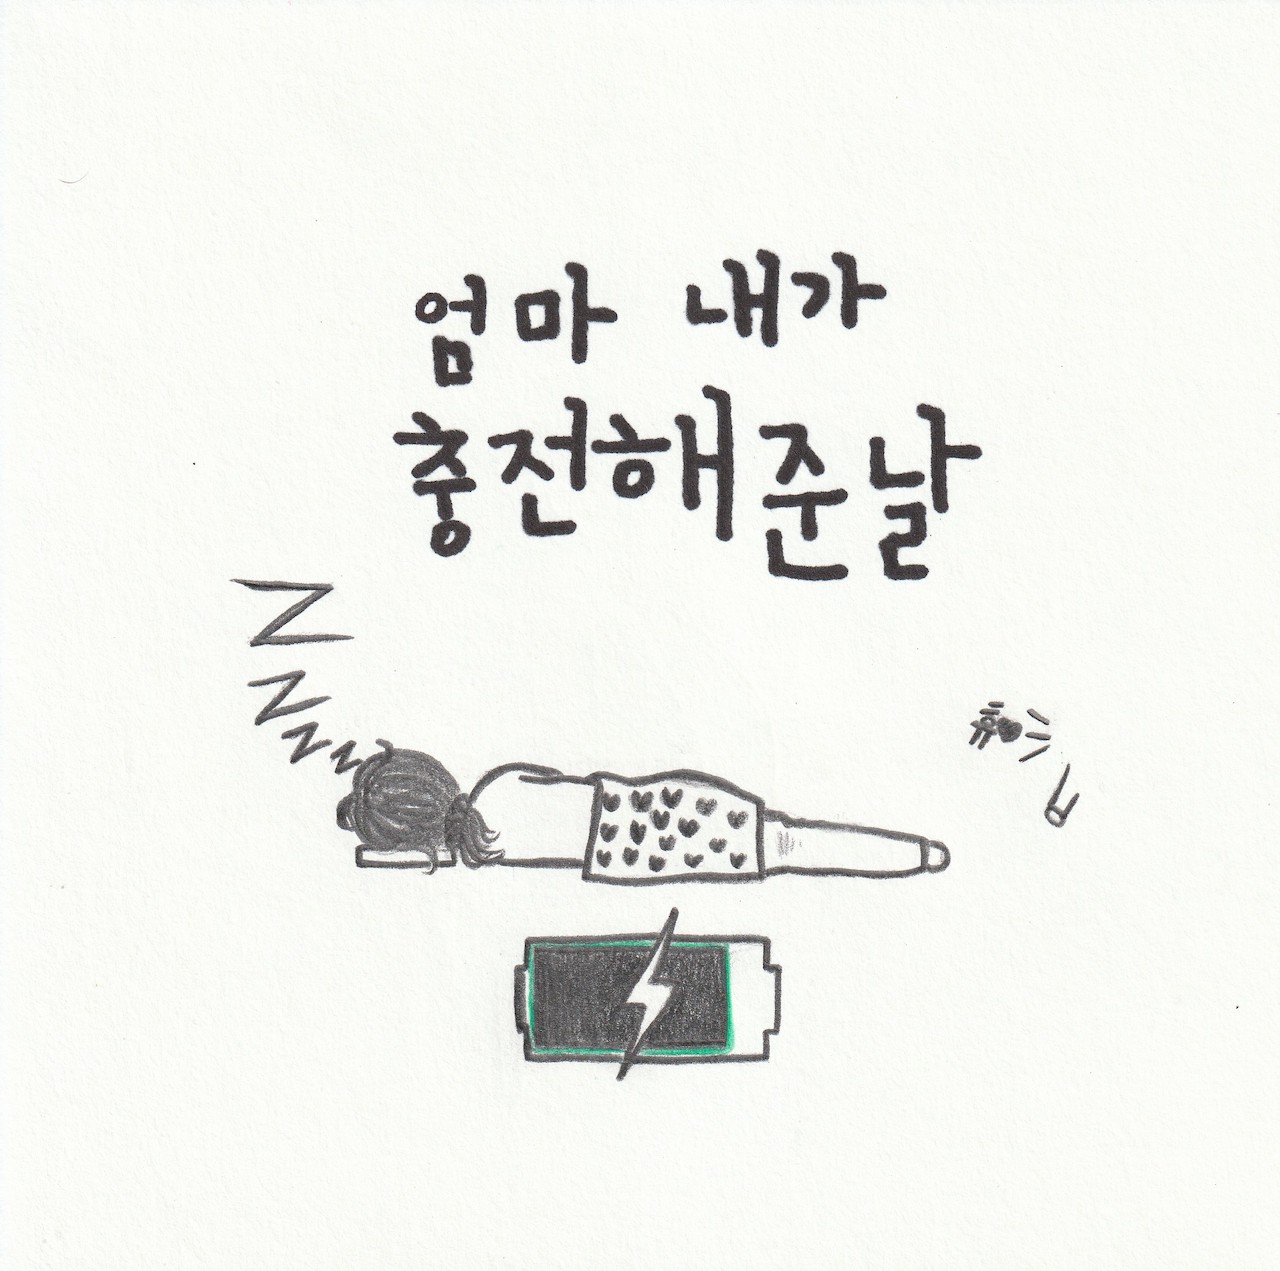 엄마 내가
충전해준날
Z
Z
Z
Z